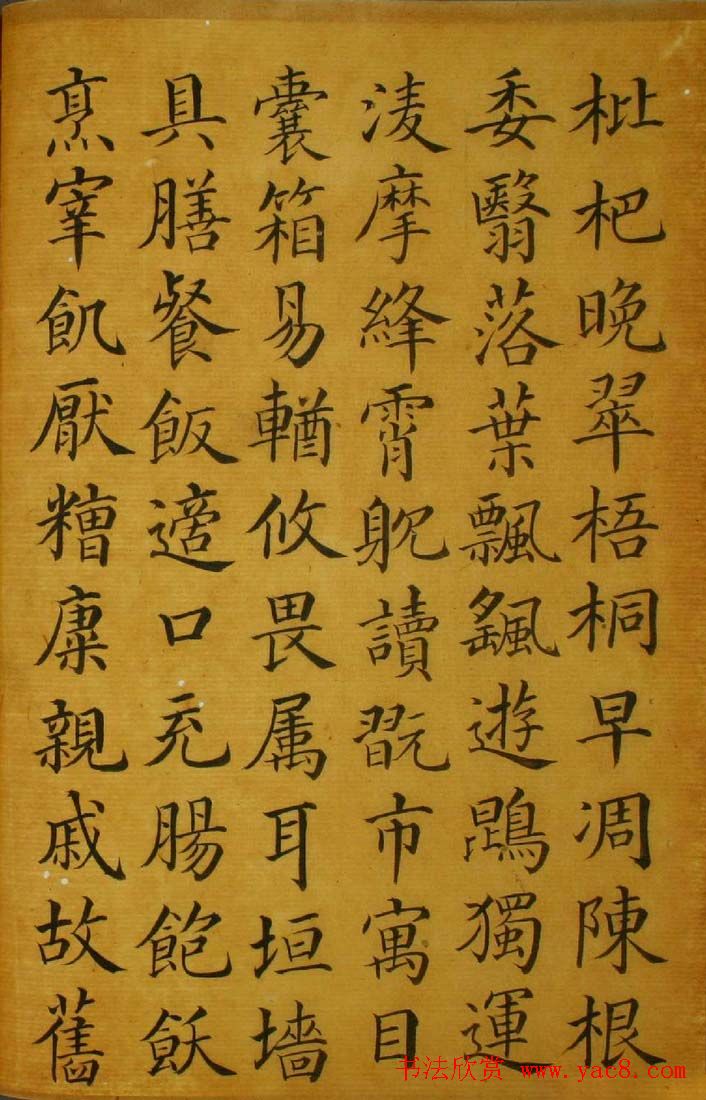 枇杷晚翠梧桐早凋陳根
委翳落葉飄颻遊鵾獨運
淩摩絳霄躭讀翫市寓目
囊箱易輶攸畏属耳垣墻
具膳餐飯適口充腸飽飫
烹宰飢厭糟糠親戚故舊
书法欣赏 www.yac8.com